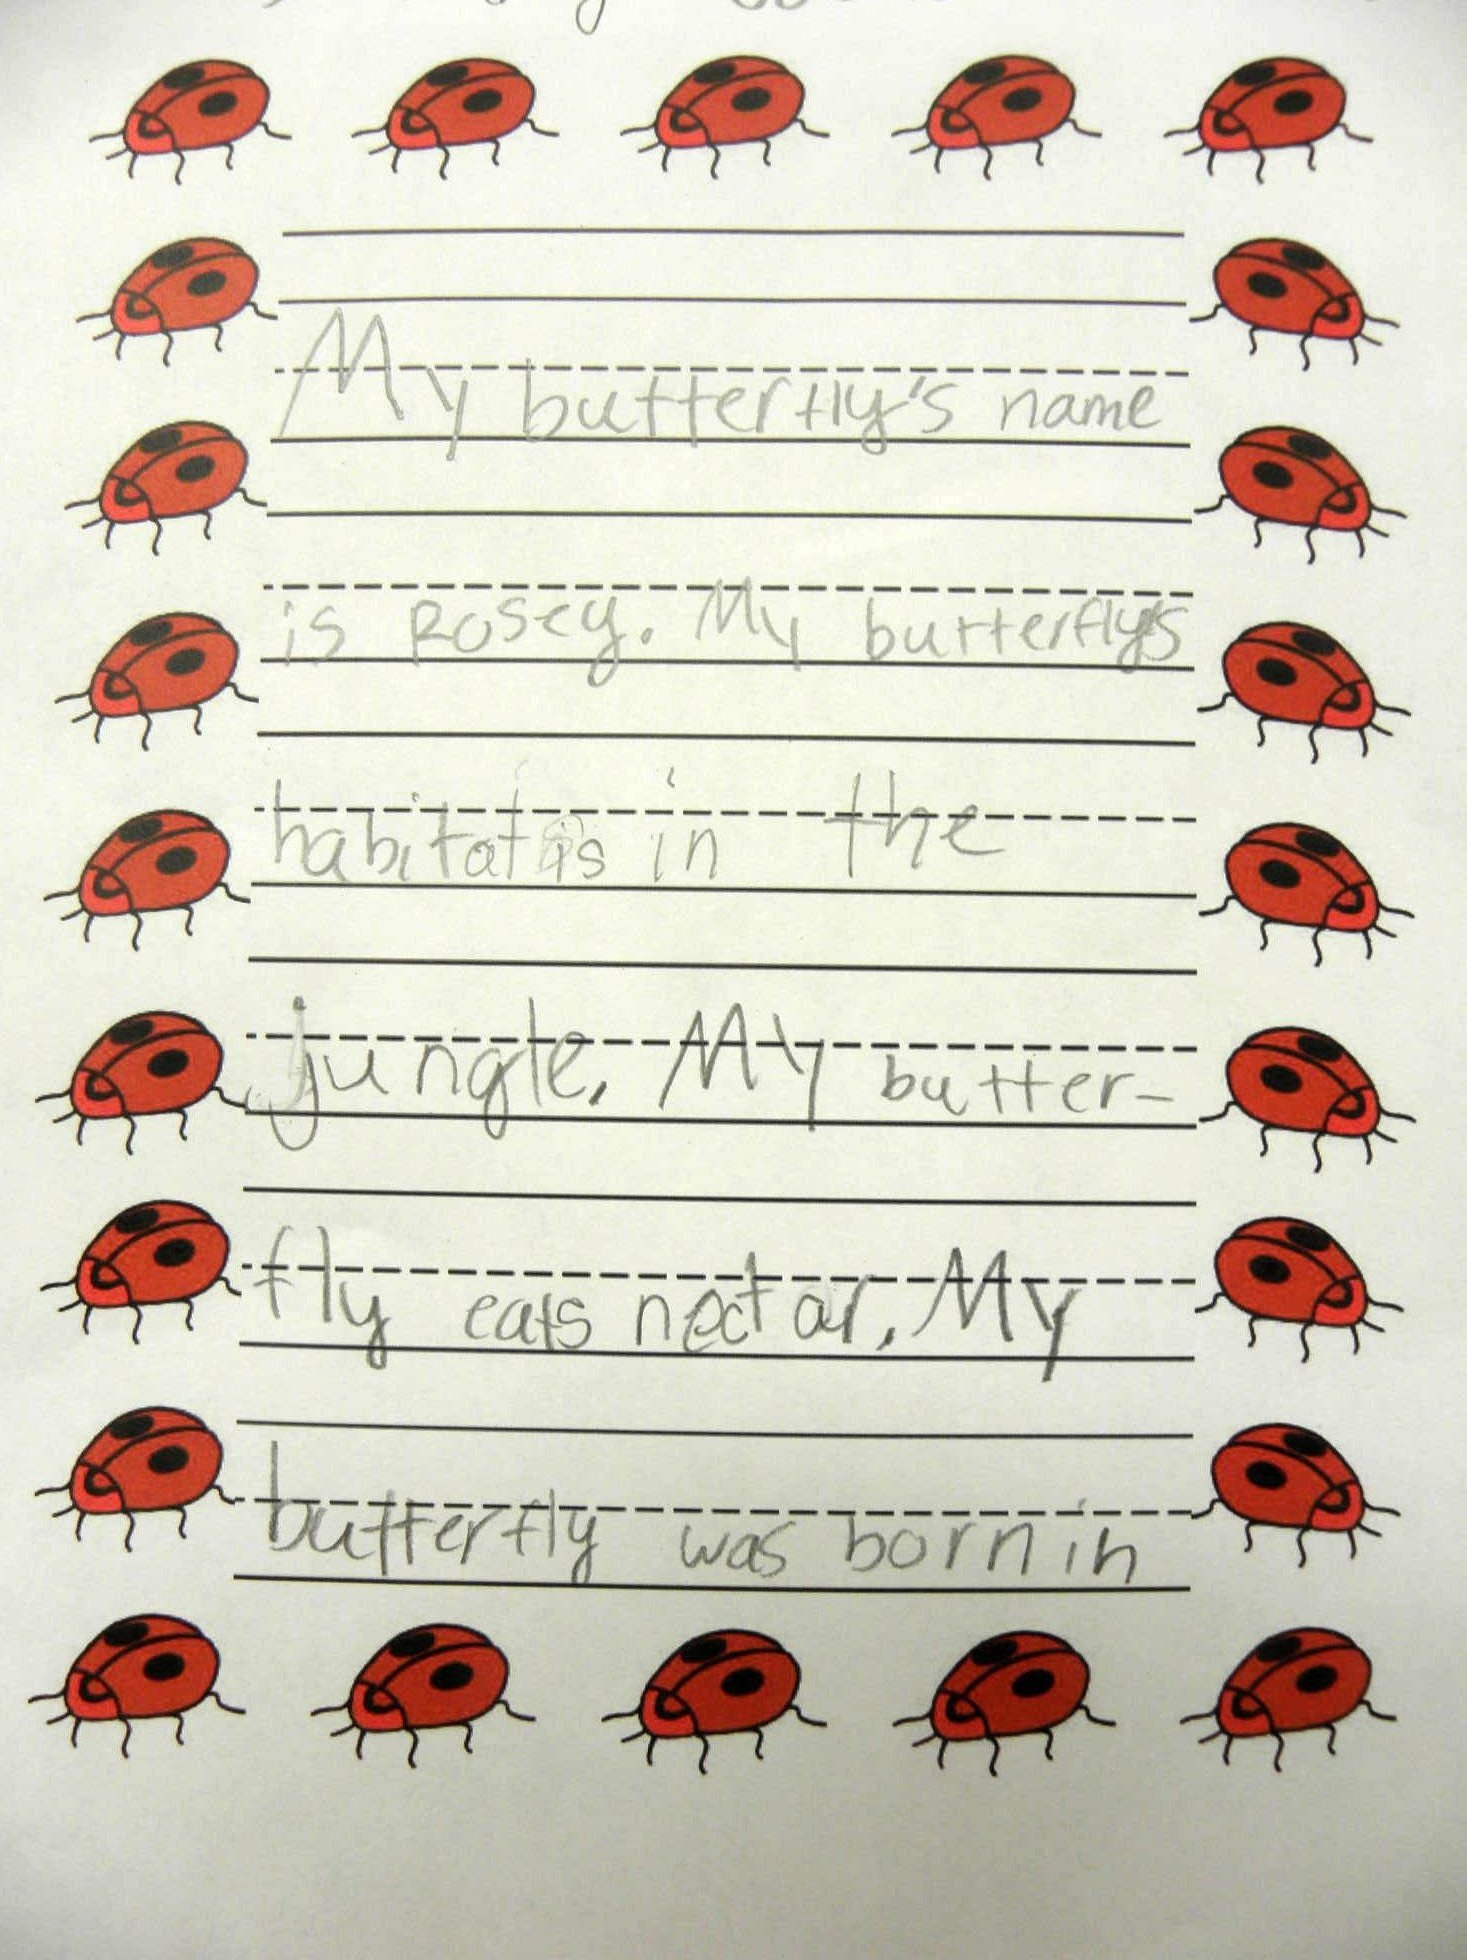 My butterfly's name
is Rosey. My butterfly's
habitat is in the
jungle. My butter-
fly eats nectar. My
butterfly was born in